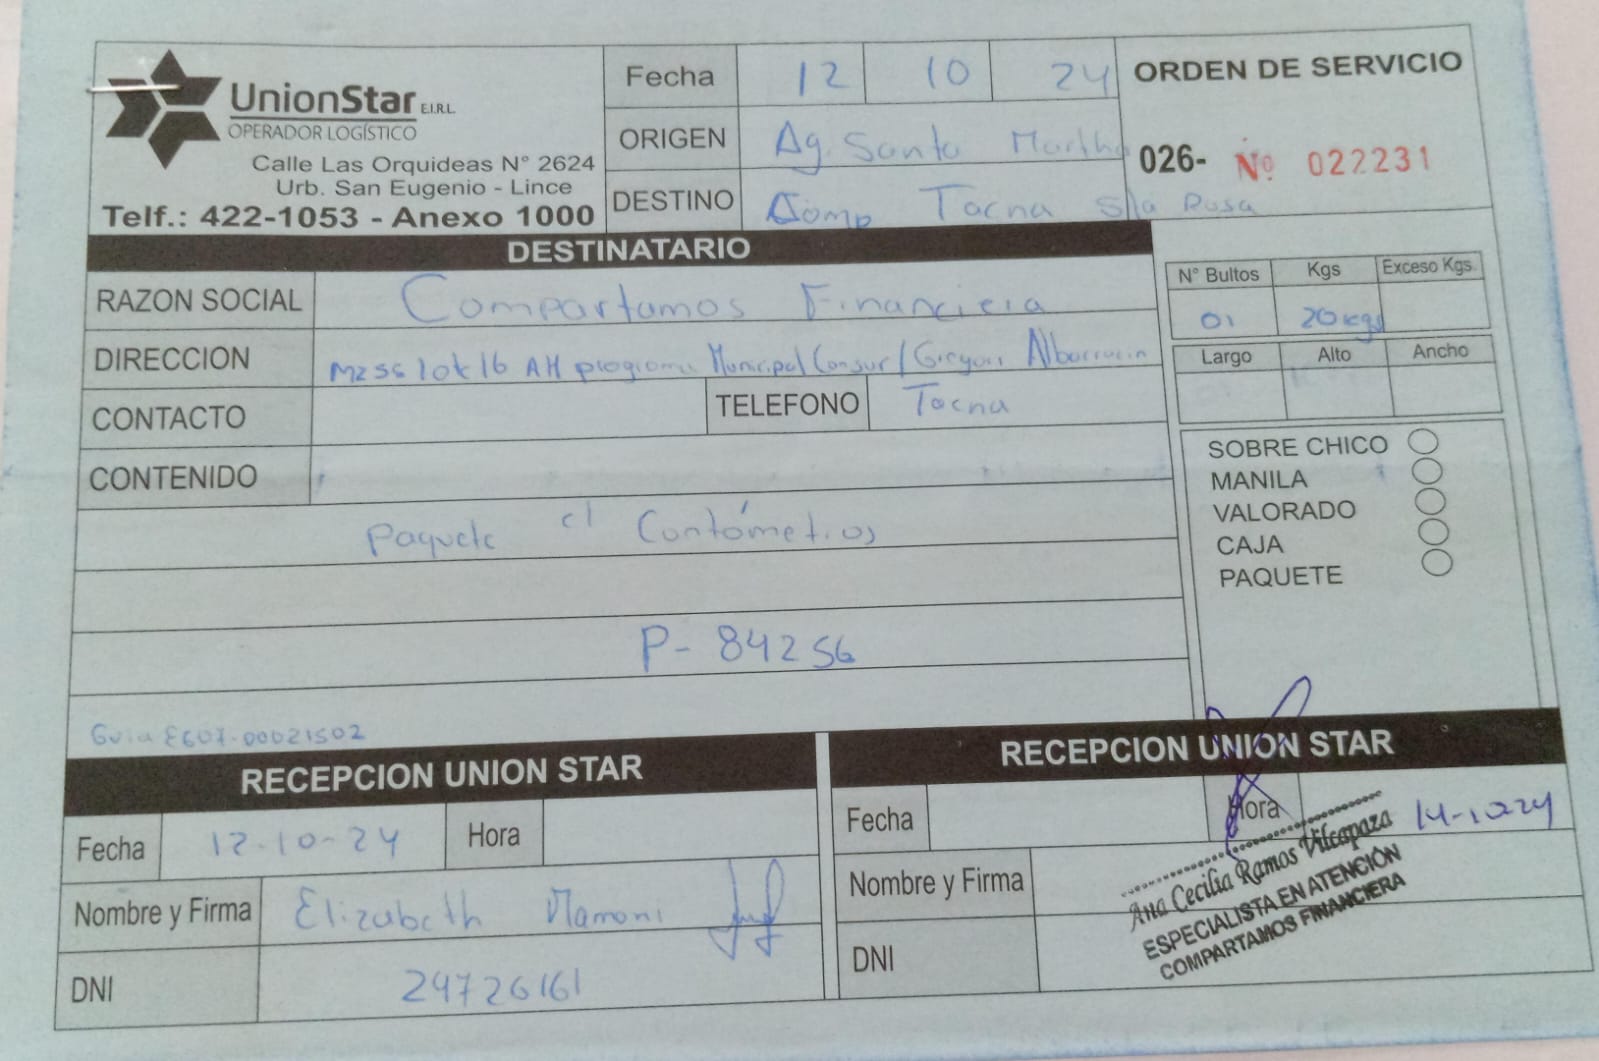 UnionStar E.I.R.L.
OPERADOR LOGÍSTICO
Calle Las Orquideas N° 2624
Urb. San Eugenio - Lince
Telf.: 422-1053 - Anexo 1000
Fecha 12 10 24
ORIGEN Ag. Santa Martha
DESTINO Comp Tacna Sta Rosa
ORDEN DE SERVICIO
026- Nº 022231
DESTINATARIO
RAZON SOCIAL Compartamos Financiera
DIRECCION Mz 56 lote 16 AH programa Municipal Consur / Gregori Albarracin
CONTACTO TELEFONO Tacna
CONTENIDO
paquete c/ Contómetros
P- 84256
Guia EG07-00021502
N° Bultos Kgs Exceso Kgs.
01 20 kgs
Largo Alto Ancho
SOBRE CHICO
MANILA
VALORADO
CAJA
PAQUETE
RECEPCION UNION STAR
Fecha 12-10-24 Hora
Nombre y Firma Elizabeth Mamani
DNI 24726161
RECEPCION UNION STAR
Fecha Hora 14-10-24
Nombre y Firma
DNI
Ana Cecilia Ramos Vilcapaza
ESPECIALISTA EN ATENCIÓN
COMPARTAMOS FINANCIERA